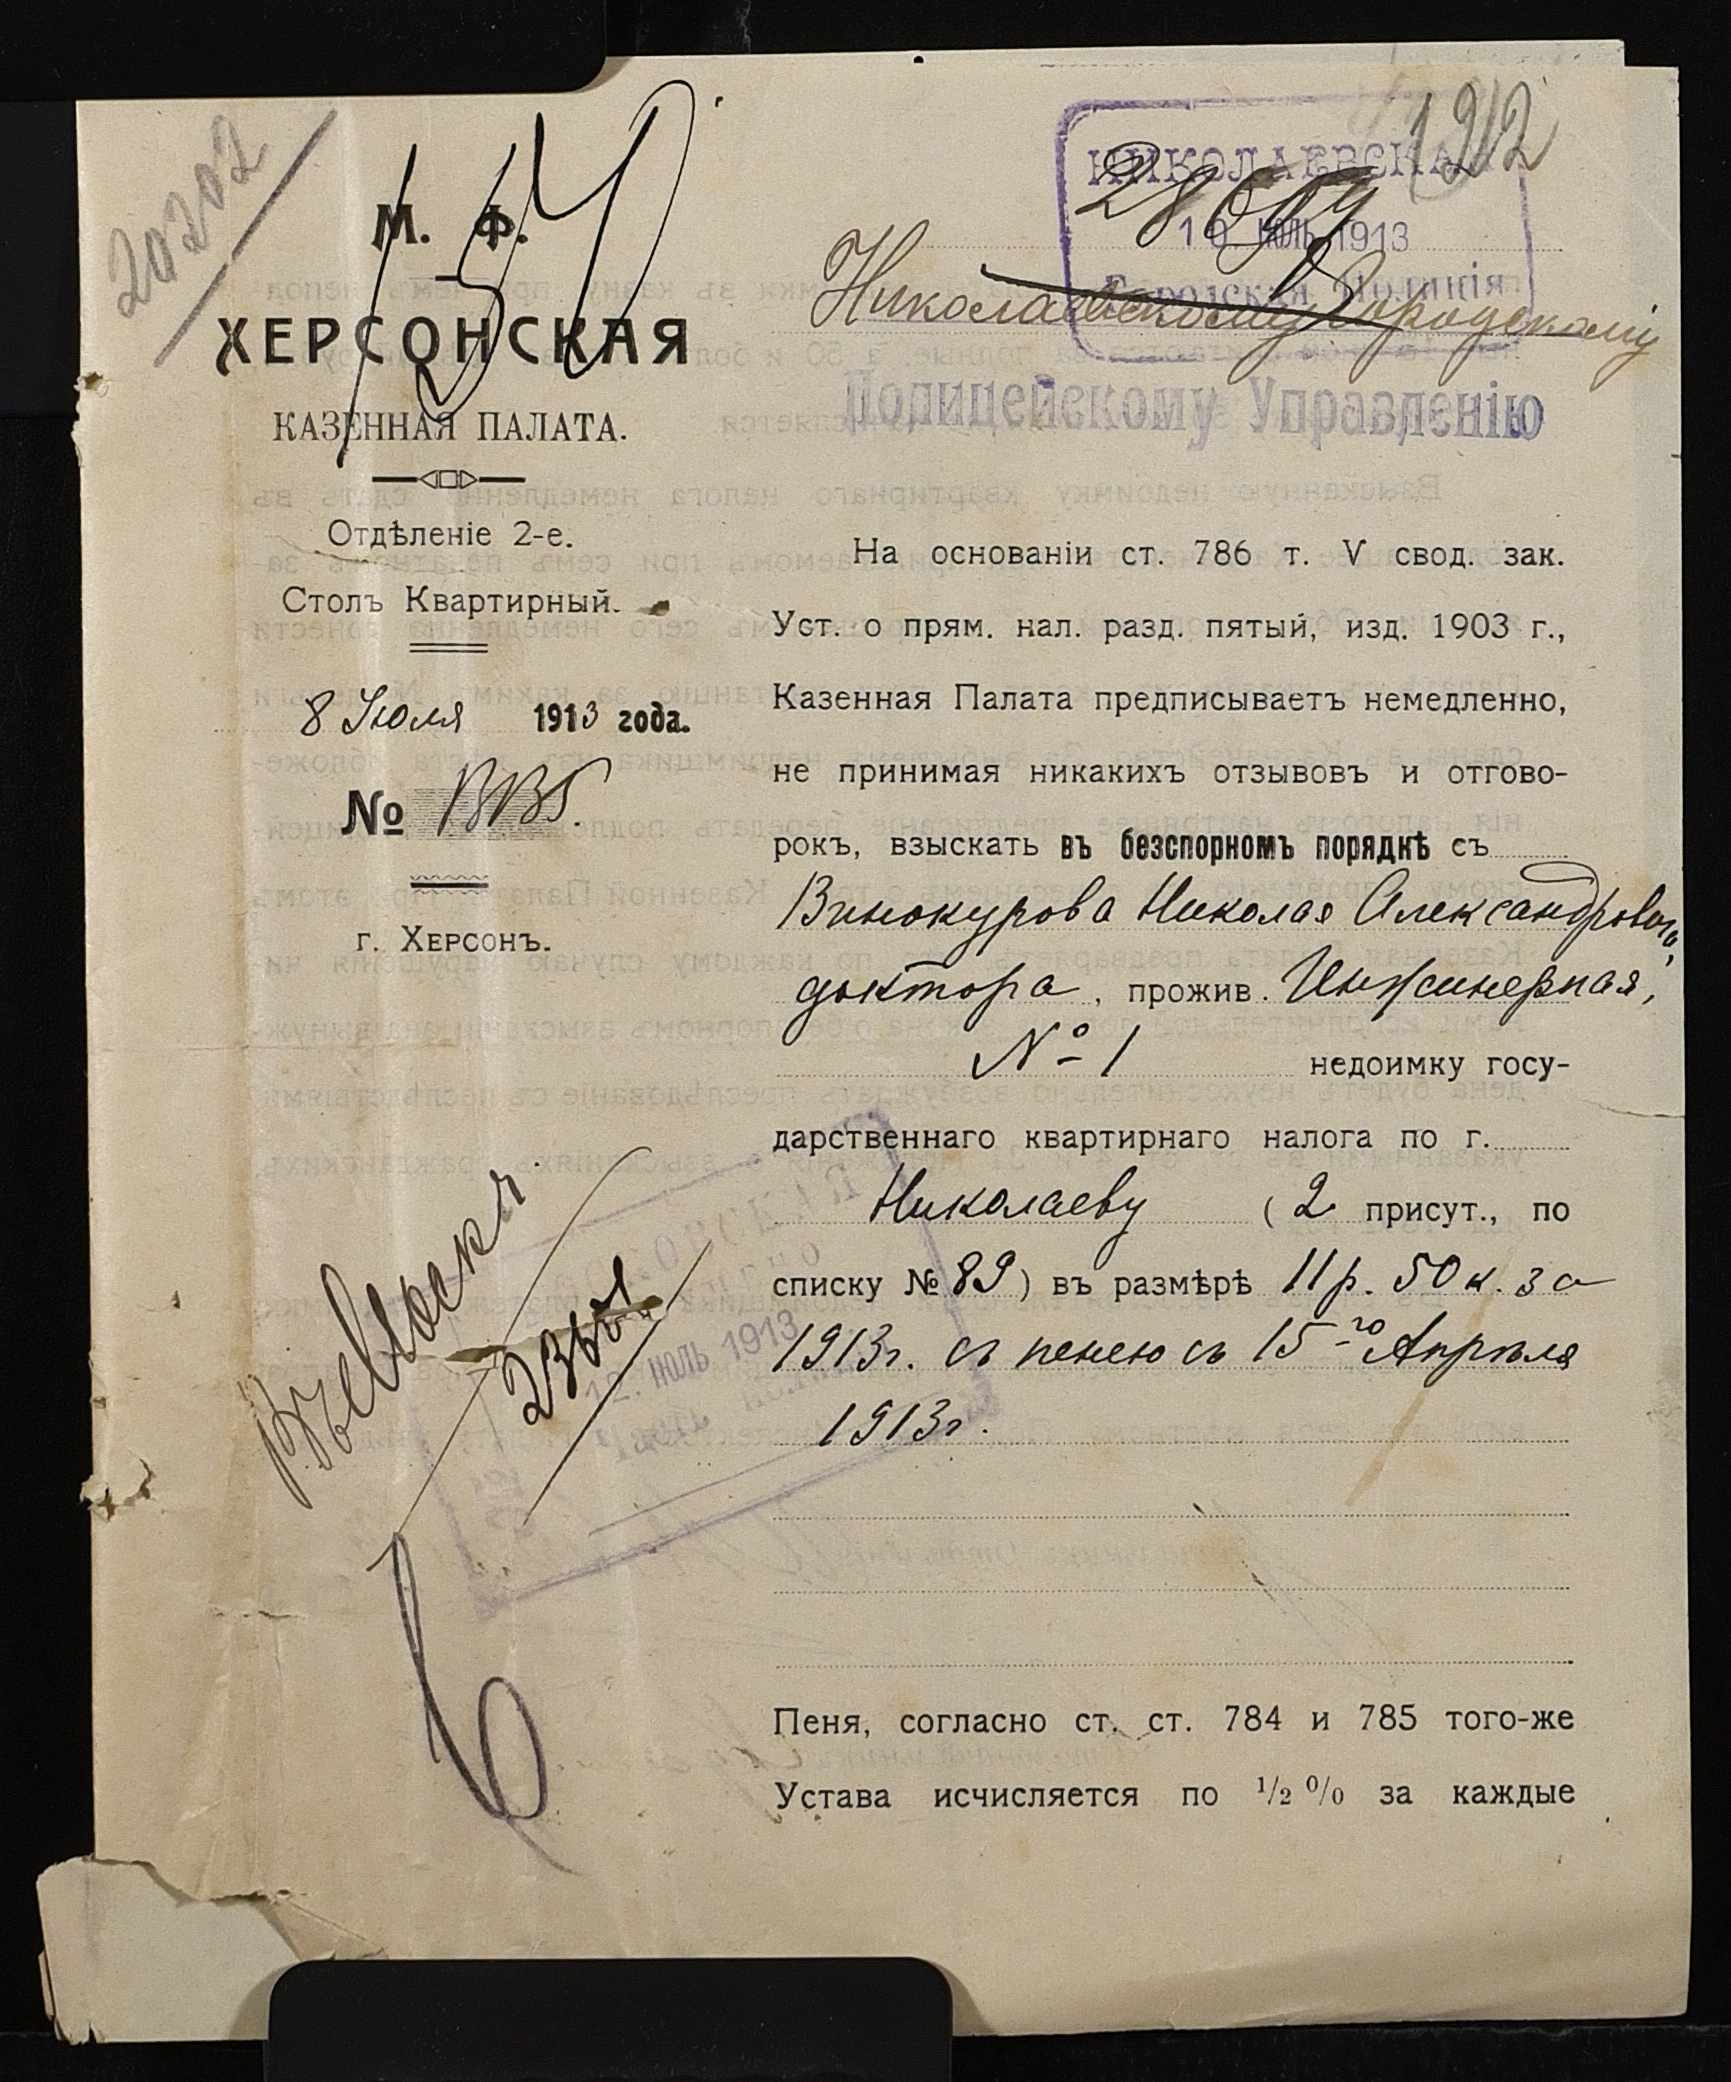 20202
1912
М. Ф.
ХЕРСОНСКАЯ
КАЗЕННАЯ ПАЛАТА.
Отдѣленіе 2-е.
Столъ Квартирный.
8 Іюля 1913 года.
№
г. Херсонъ.
НИКОЛАЕВСКАЯ
10 ІЮЛЬ 1913
Городская Полиція
Николаевскому Городскому
Полицейскому Управленію
На основаніи ст. 786 т. V свод. зак.
Уст. о прям. нал. разд. пятый, изд. 1903 г.,
Казенная Палата предписываетъ немедленно,
не принимая никакихъ отзывовъ и отгово-
рокъ, взыскать въ безспорномъ порядкѣ съ
Винокурова Николая Александровича,
доктора, прожив. Инжинерная,
№ 1 недоимку госу-
дарственнаго квартирнаго налога по г.
Николаеву (2 присут., по
списку № 89) въ размѣрѣ 11 р. 50 к. за
1913 г. съ пенею съ 15-го Апрѣля
1913 г.
12. ІЮЛЬ 1913
Пеня, согласно ст. ст. 784 и 785 того-же
Устава исчисляется по 1/2 0/0 за каждые